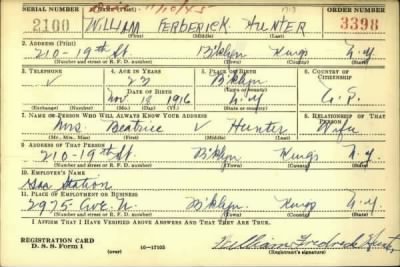 SERIAL NUMBER 1. NAME (Print) ORDER NUMBER
2100 WILLIAM FERDERICK HUNTER 3398
(First) (Middle) (Last)
2. ADDRESS (Print)
210-19th St. B'klyn Kings N.Y.
(Number and street or R. F. D. number) (Town) (County) (State)
3. TELEPHONE 4. AGE IN YEARS 5. PLACE OF BIRTH 6. COUNTRY OF CITIZENSHIP
23 B'klyn
DATE OF BIRTH (Town or county)
Nov. 18 1916 N.Y. U.S.
(Exchange) (Number) (Mo.) (Day) (Yr.) (State or country)
7. NAME OF PERSON WHO WILL ALWAYS KNOW YOUR ADDRESS 8. RELATIONSHIP OF THAT PERSON
Mrs. Beatrice V Hunter Wife
(Mr., Mrs., Miss) (First) (Middle) (Last)
9. ADDRESS OF THAT PERSON
210-19th St. B'klyn Kings N.Y.
(Number and street or R. F. D. number) (Town) (County) (State)
10. EMPLOYER'S NAME
Gas Station
11. PLACE OF EMPLOYMENT OR BUSINESS
2975 Ave. N. B'klyn Kings N.Y.
(Number and street or R. F. D. number) (Town) (County) (State)
I AFFIRM THAT I HAVE VERIFIED ABOVE ANSWERS AND THAT THEY ARE TRUE.
REGISTRATION CARD
D. S. S. Form 1 (over) 16—17105 William Fredrick Hunter
(Registrant's signature)